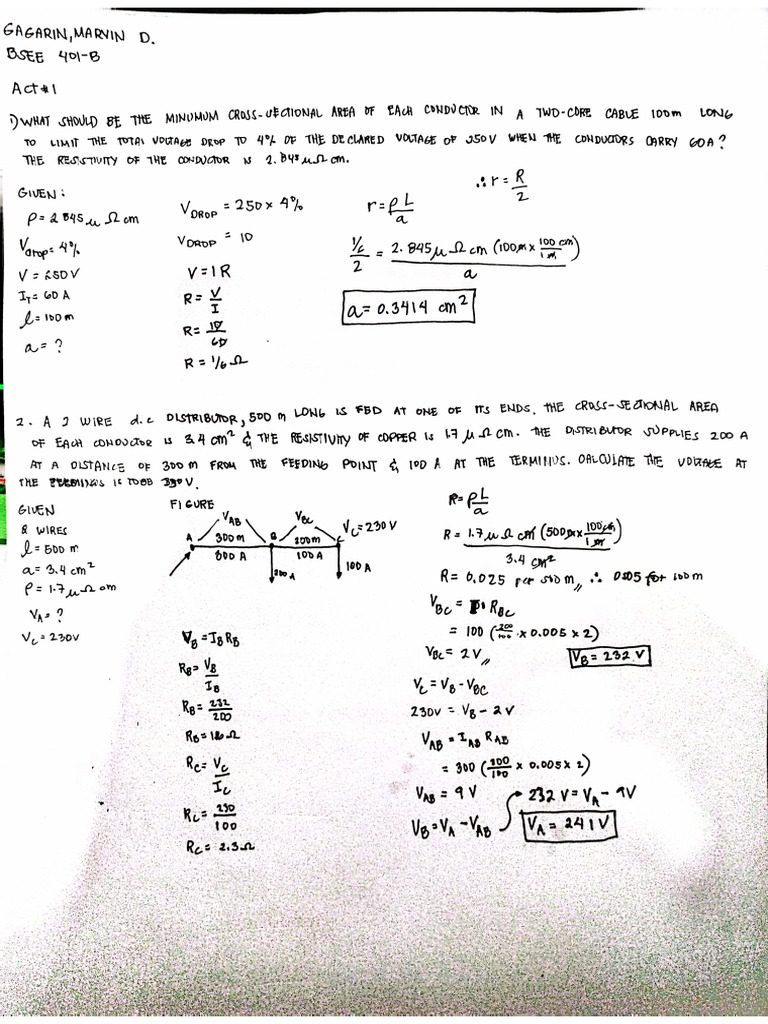 GAGARIN, MARVIN D.
BSEE 401-B
Act #1
1) WHAT SHOULD BE THE MINUMUM CROSS-SECTIONAL AREA OF EACH CONDUCTOR IN A TWO-CORE CABLE 100m LONG
TO LIMIT THE TOTAL VOLTAGE DROP TO 4% OF THE DECLARED VOLTAGE OF 250V WHEN THE CONDUCTORS CARRY 60A?
THE RESISTIVITY OF THE CONDUCTOR IS 2.845 μ Ω cm.
GIVEN:
ρ = 2.845 μ Ω cm
Vdrop = 4%
V = 250V
IT = 60 A
l = 100m
a = ?
VDROP = 250 x 4%
VDROP = 10
V = IR
R = V/I
R = 10/60
R = 1/6 Ω
∴ r = R/2
r = ρL/a
(1/6)/2 = 2.845 μ Ω cm (100m x 100 cm/1 m)/a
a = 0.3414 cm²
2. A 2 WIRE d.c DISTRIBUTOR, 500 m LONG IS FED AT ONE OF ITS ENDS. THE CROSS-SECTIONAL AREA
OF EACH CONDUCTOR IS 3.4 cm² & THE RESISTIVITY OF COPPER IS 1.7 μ Ω cm. THE DISTRIBUTOR SUPPLIES 200 A
AT A DISTANCE OF 300 m FROM THE FEEDING POINT & 100 A AT THE TERMINUS. CALCULATE THE VOLTAGE AT
THE IS TO BE 230V.
GIVEN
2 WIRES
l = 500 m
a = 3.4 cm²
ρ = 1.7 μ Ω cm
VA = ?
VC = 230V
FIGURE
VAB VBC VC = 230 V
A 300m B 200m C
300 A 100 A
200 A 100 A
VB = IB RB
RB = VB/IB
RB = 232/200
RB = 1.16 Ω
RC = VC/IC
RC = 230/100
RC = 2.3 Ω
R = ρL/a
R = 1.7 μ Ω cm (500m x 100cm/1 m)/3.4 cm²
R = 0.025 per 500 m,, ∴ 0.005 for 100m
VBC = RBC
= 100 (200/100 x 0.005 x 2)
VBC = 2V,, VB = 232 V
VC = VB - VBC
230V = VB - 2V
VAB = IAB RAB
= 300 (300/100 x 0.005 x 2)
VAB = 9V 232 V = VA - 9V
VB = VA - VAB VA = 241V